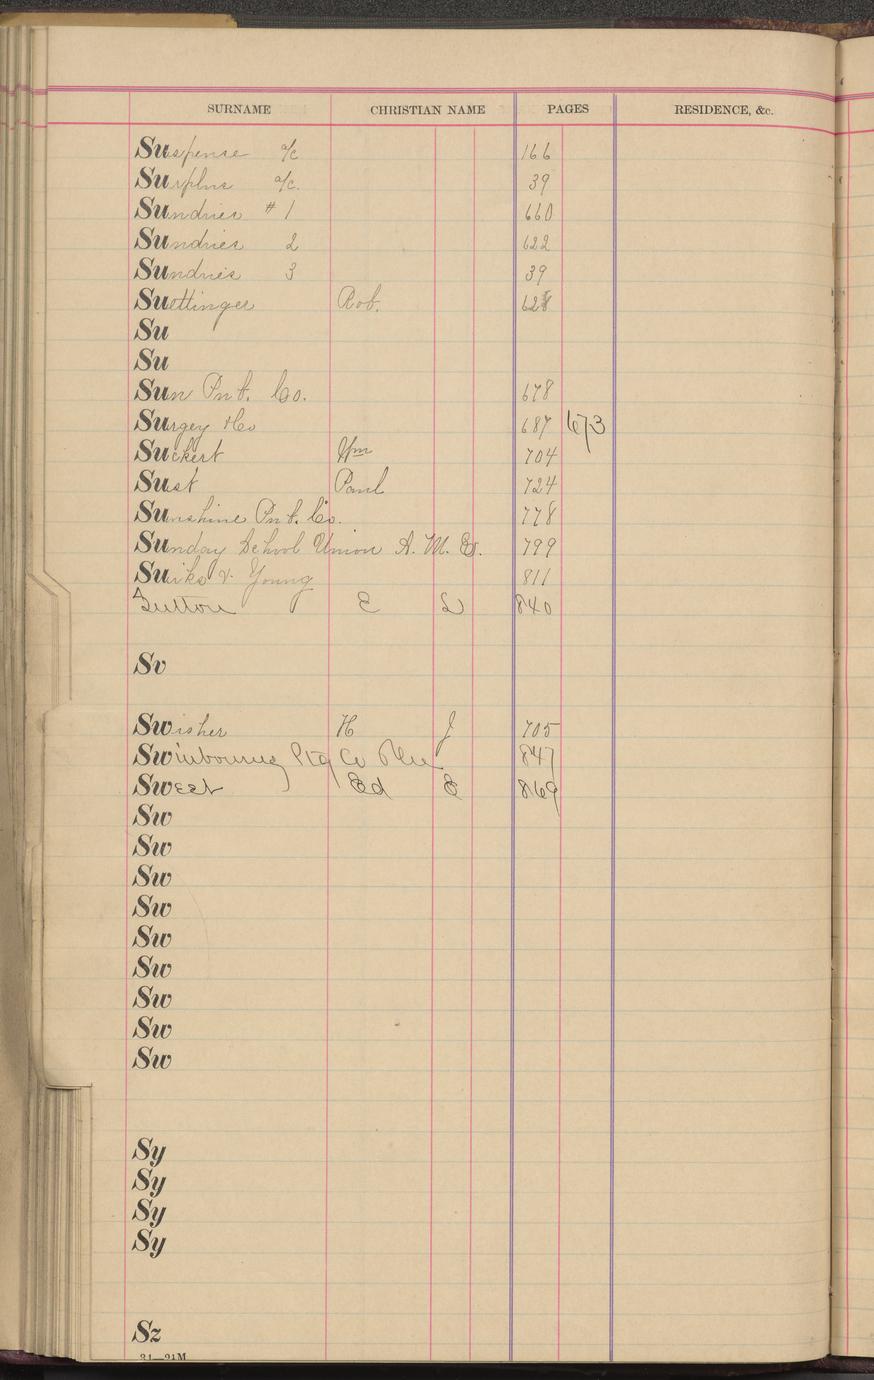 SURNAME CHRISTIAN NAME PAGES RESIDENCE, &c.
Suspense a/c 166
Surplus a/c. 39
Sundries #1 660
Sundries 2 622
Sundries 3 39
Suettinger Rob. 628
Su
Su
Sun Pnt. Co. 678
Surgey & Co 687 673
Suckert Wm 704
Sust Paul 724
Sunshine Pnt. Co. 778
Sunday School Union A. M. E. 799
Suiks & Young 811
Sutton E L 840
Sv
Swisher H J 705
Swinbourne Ptg Co 847
Sweet Ed E 869
Sw
Sw
Sw
Sw
Sw
Sw
Sw
Sw
Sw
Sy
Sy
Sy
Sy
Sz
31—21M